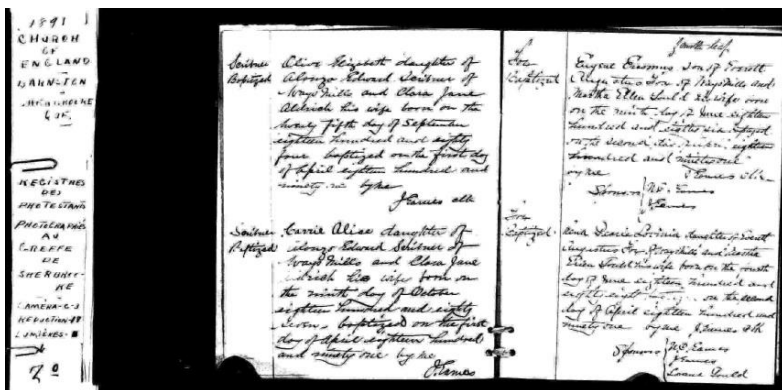 1891
CHURCH
OF
ENGLAND
BARNSTON
QUE.
REGISTRES
DES
PROTESTANTS
PHOTOGRAPHIÉS
AU
GREFFE
DE
SHERBROO-
KE
CAMÉRA-C-3
REDUCTION-17
LUMIÈRES-
2º
Scribner
Baptized
Olive Elizabeth daughter of
Alonzo Edward Scribner of
Ways Mills and Clara Jane
Aldrich his wife born on the
twenty fifth day of September
eighteen hundred and eighty
four baptized on the first day
of April eighteen hundred and
ninety one by me
J Eames
Scribner
Baptized
Carrie Alice daughter of
Alonzo Edward Scribner of
Ways Mills and Clara Jane
Aldrich his wife born on
the ninth day of October
eighteen hundred and eighty
seven baptized on the first
day of April eighteen hundred
and ninety one by me
J Eames
fourth leaf
Fox
Baptized
Eugene Erasmus Son of Everett
Augustus Fox of Ways Mills and
Martha Ellen Gould his wife born
on the ninth day of June eighteen
hundred and eighty six baptized
on the second day eighteen
hundred and ninety one
by me J Eames
Sponsors
W E Eames
J Eames
Fox
Baptized
daughter of Everett
Augustus Fox of Ways Mills and
Ellen Gould his wife born on the fourth
day of June eighteen hundred and
eighty eight on the second
day of April eighteen hundred and
ninety one by me J Eames
Sponsors
W E Eames
J Eames
Gould